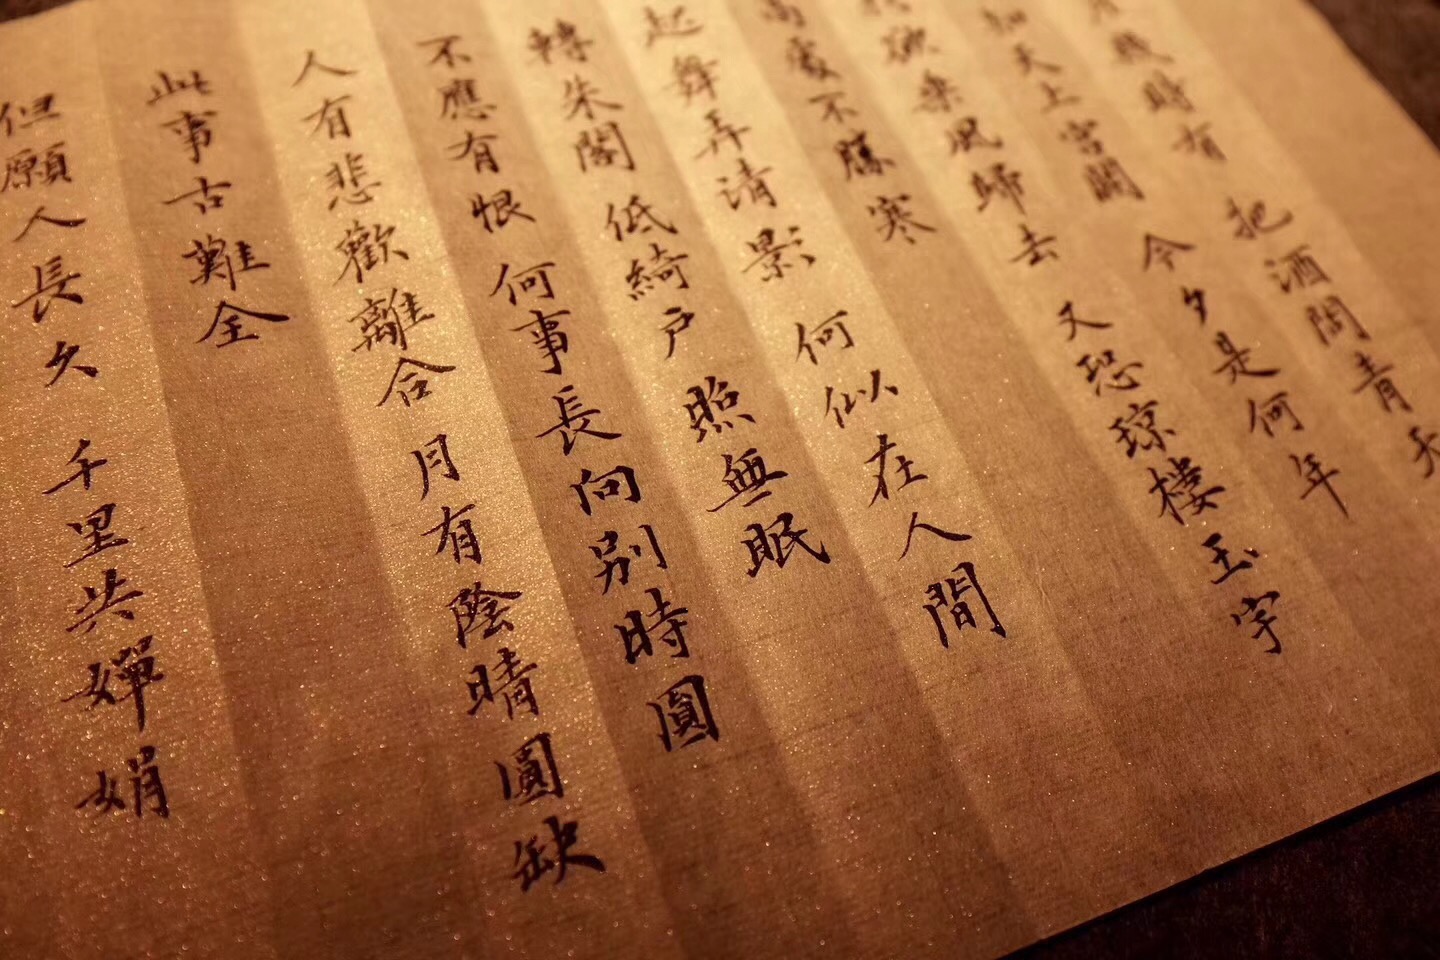 幾時有 把酒問青天
知天上宮闕 今夕是何年
欲乘風歸去 又恐琼樓玉宇
高處不勝寒
起舞弄清影 何似在人間
轉朱閣 低綺戶 照無眠
不應有恨 何事長向別時圓
人有悲歡離合 月有陰晴圓缺
此事古難全
但願人長久 千里共嬋娟